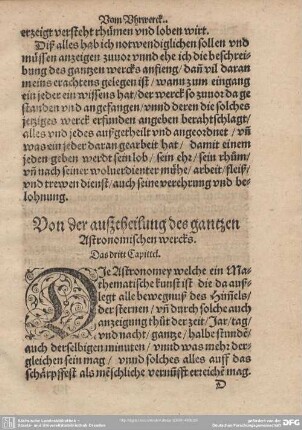 Vom Vhrwerck.
erzeigt versteht rhůmen vnd loben wirt.
Diß alles hab ich notwendiglichen sollen vnd
müssen anzeigen zuuor vnnd ehe ich die beschrei-
bung des gantzen wercks anfieng/ dañ vil daran
meins erachtens gelegen ist/ wann zum eingang
ein jeder ein wissens hat/ der werck so zuuor da ge
standen vnd angefangen/ vnnd deren die solches
jetziges werck erfunden angeben berahtschlagt/
alles vnd jedes außgetheilt vnd angeordnet/ vñ
was ein jeder daran gearbeit hat/ damit einem
jeden geben werdt sein lob/ sein ehr/ sein rhům/
vñ nach seiner woluerdienter můhe/ arbeit/ fleiß/
vnd trewen dienst/ auch seine verehrung vnd be-
lohnung.
Von der außtheilung des gantzen
Astronomischen wercks.
Das dritt Capittel.
DIe Astronomey welche ein Ma-
thematische kunst ist die da auß-
legt alle bewegnuß des Him̃els/
der sternen/ vñ durch solche auch
anzeigung thůt der zeit/ Jar/ tag/
vñ nacht/ gantze/ halbe stunde/
auch derselbigen minuten/ vnnd was mehr der-
gleichen sein mag/ vnnd solches alles auff das
schärpffest als mẽschliche vernüfft erreiche mag.
D